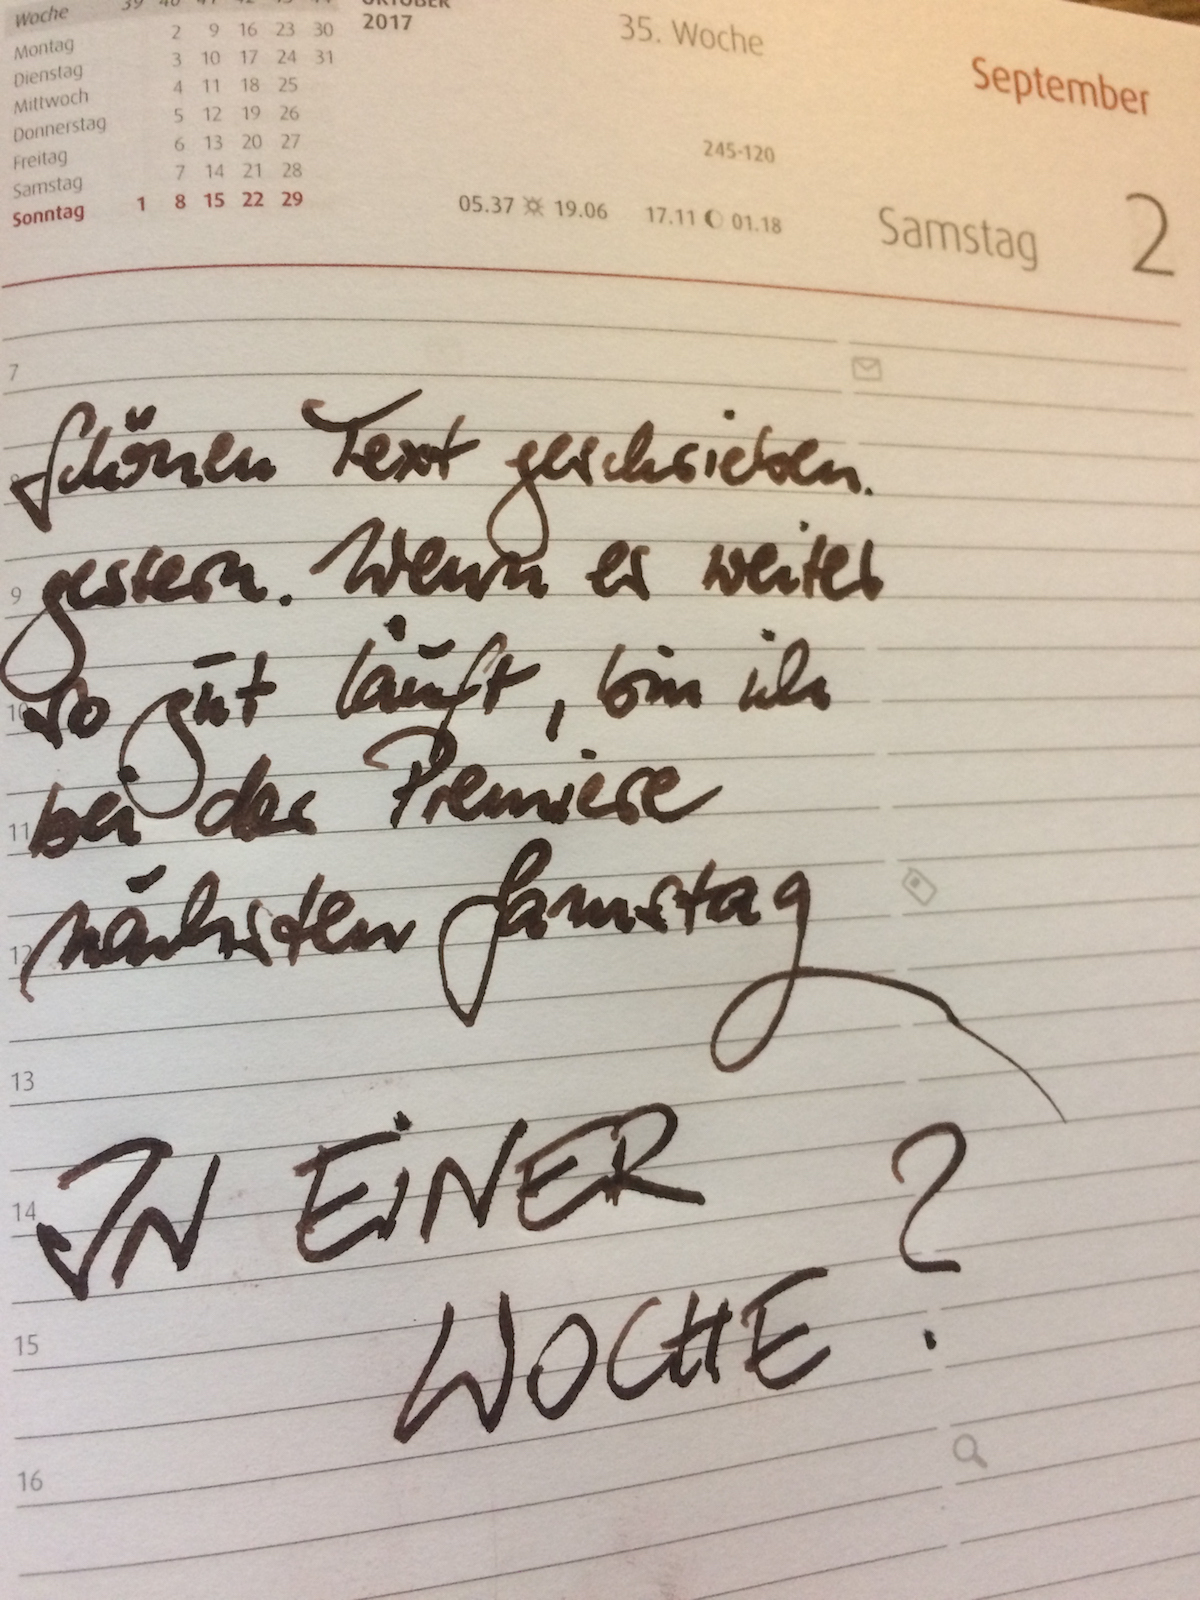 Woche 39 40 41 42 43 44
Montag 2 9 16 23 30
Dienstag 3 10 17 24 31
Mittwoch 4 11 18 25
Donnerstag 5 12 19 26
Freitag 6 13 20 27
Samstag 7 14 21 28
Sonntag 1 8 15 22 29
OKTOBER
2017
35. Woche
September
245-120
05.37 19.06 17.11 01.18
Samstag 2
7
Schönen Text geschrieben.
9 gestern. Wenn es weiter
10 so gut läuft, bin ich
11 bei der Premiere
12 nächsten Samstag
13
14 IN EINER ?
15 WOCHE
16